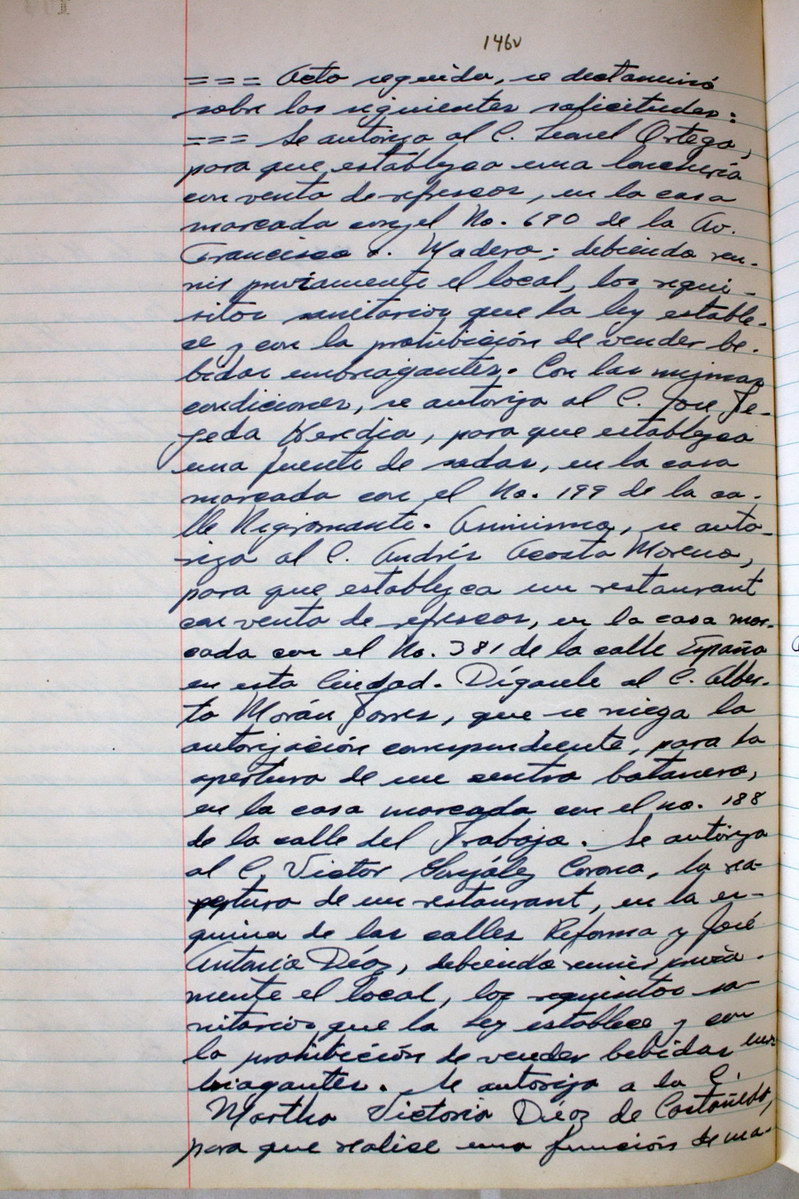 146v
=== Acto seguido, se dictaminó
sobre las siguientes solicitudes:
=== Se autoriza al C. Leonel Ortega,
para que establezca una lonchería
con venta de refrescos, en la casa
marcada con el No. 690 de la Av.
Francisco I. Madero; debiendo reu-
nir previamente el local, los requi-
sitos sanitarios que la ley estable-
ce y con la prohibición de vender be-
bidas embriagantes. Con las mismas
condiciones, se autoriza al C. José Te-
jeda Heredia, para que establezca
una fuente de sodas, en la casa
marcada con el No. 199 de la ca-
lle Nigromante. Asimismo, se auto-
riza al C. Andrés Acosta Moreno,
para que establezca un restaurant
con venta de refrescos, en la casa mar-
cada con el No. 381 de la calle España
en esta Ciudad. Dígasele al C. Alber-
to Morán Torres, que se niega la
autorización correspondiente, para la
apertura de un centro botanero,
en la casa marcada con el no. 188
de la calle del Trabajo. Se autoriza
al C. Victor González Corona, la rea-
pertura de un restaurant, en la es-
quina de las calles Reforma y José
Antonio Díaz, debiendo reunir previa-
mente el local, los requisitos sa-
nitarios que la Ley establece y con
la prohibición de vender bebidas em-
briagantes. Se autoriza a la C.
Martha Victoria Díaz de Castañeda,
para que realice una función de ma-